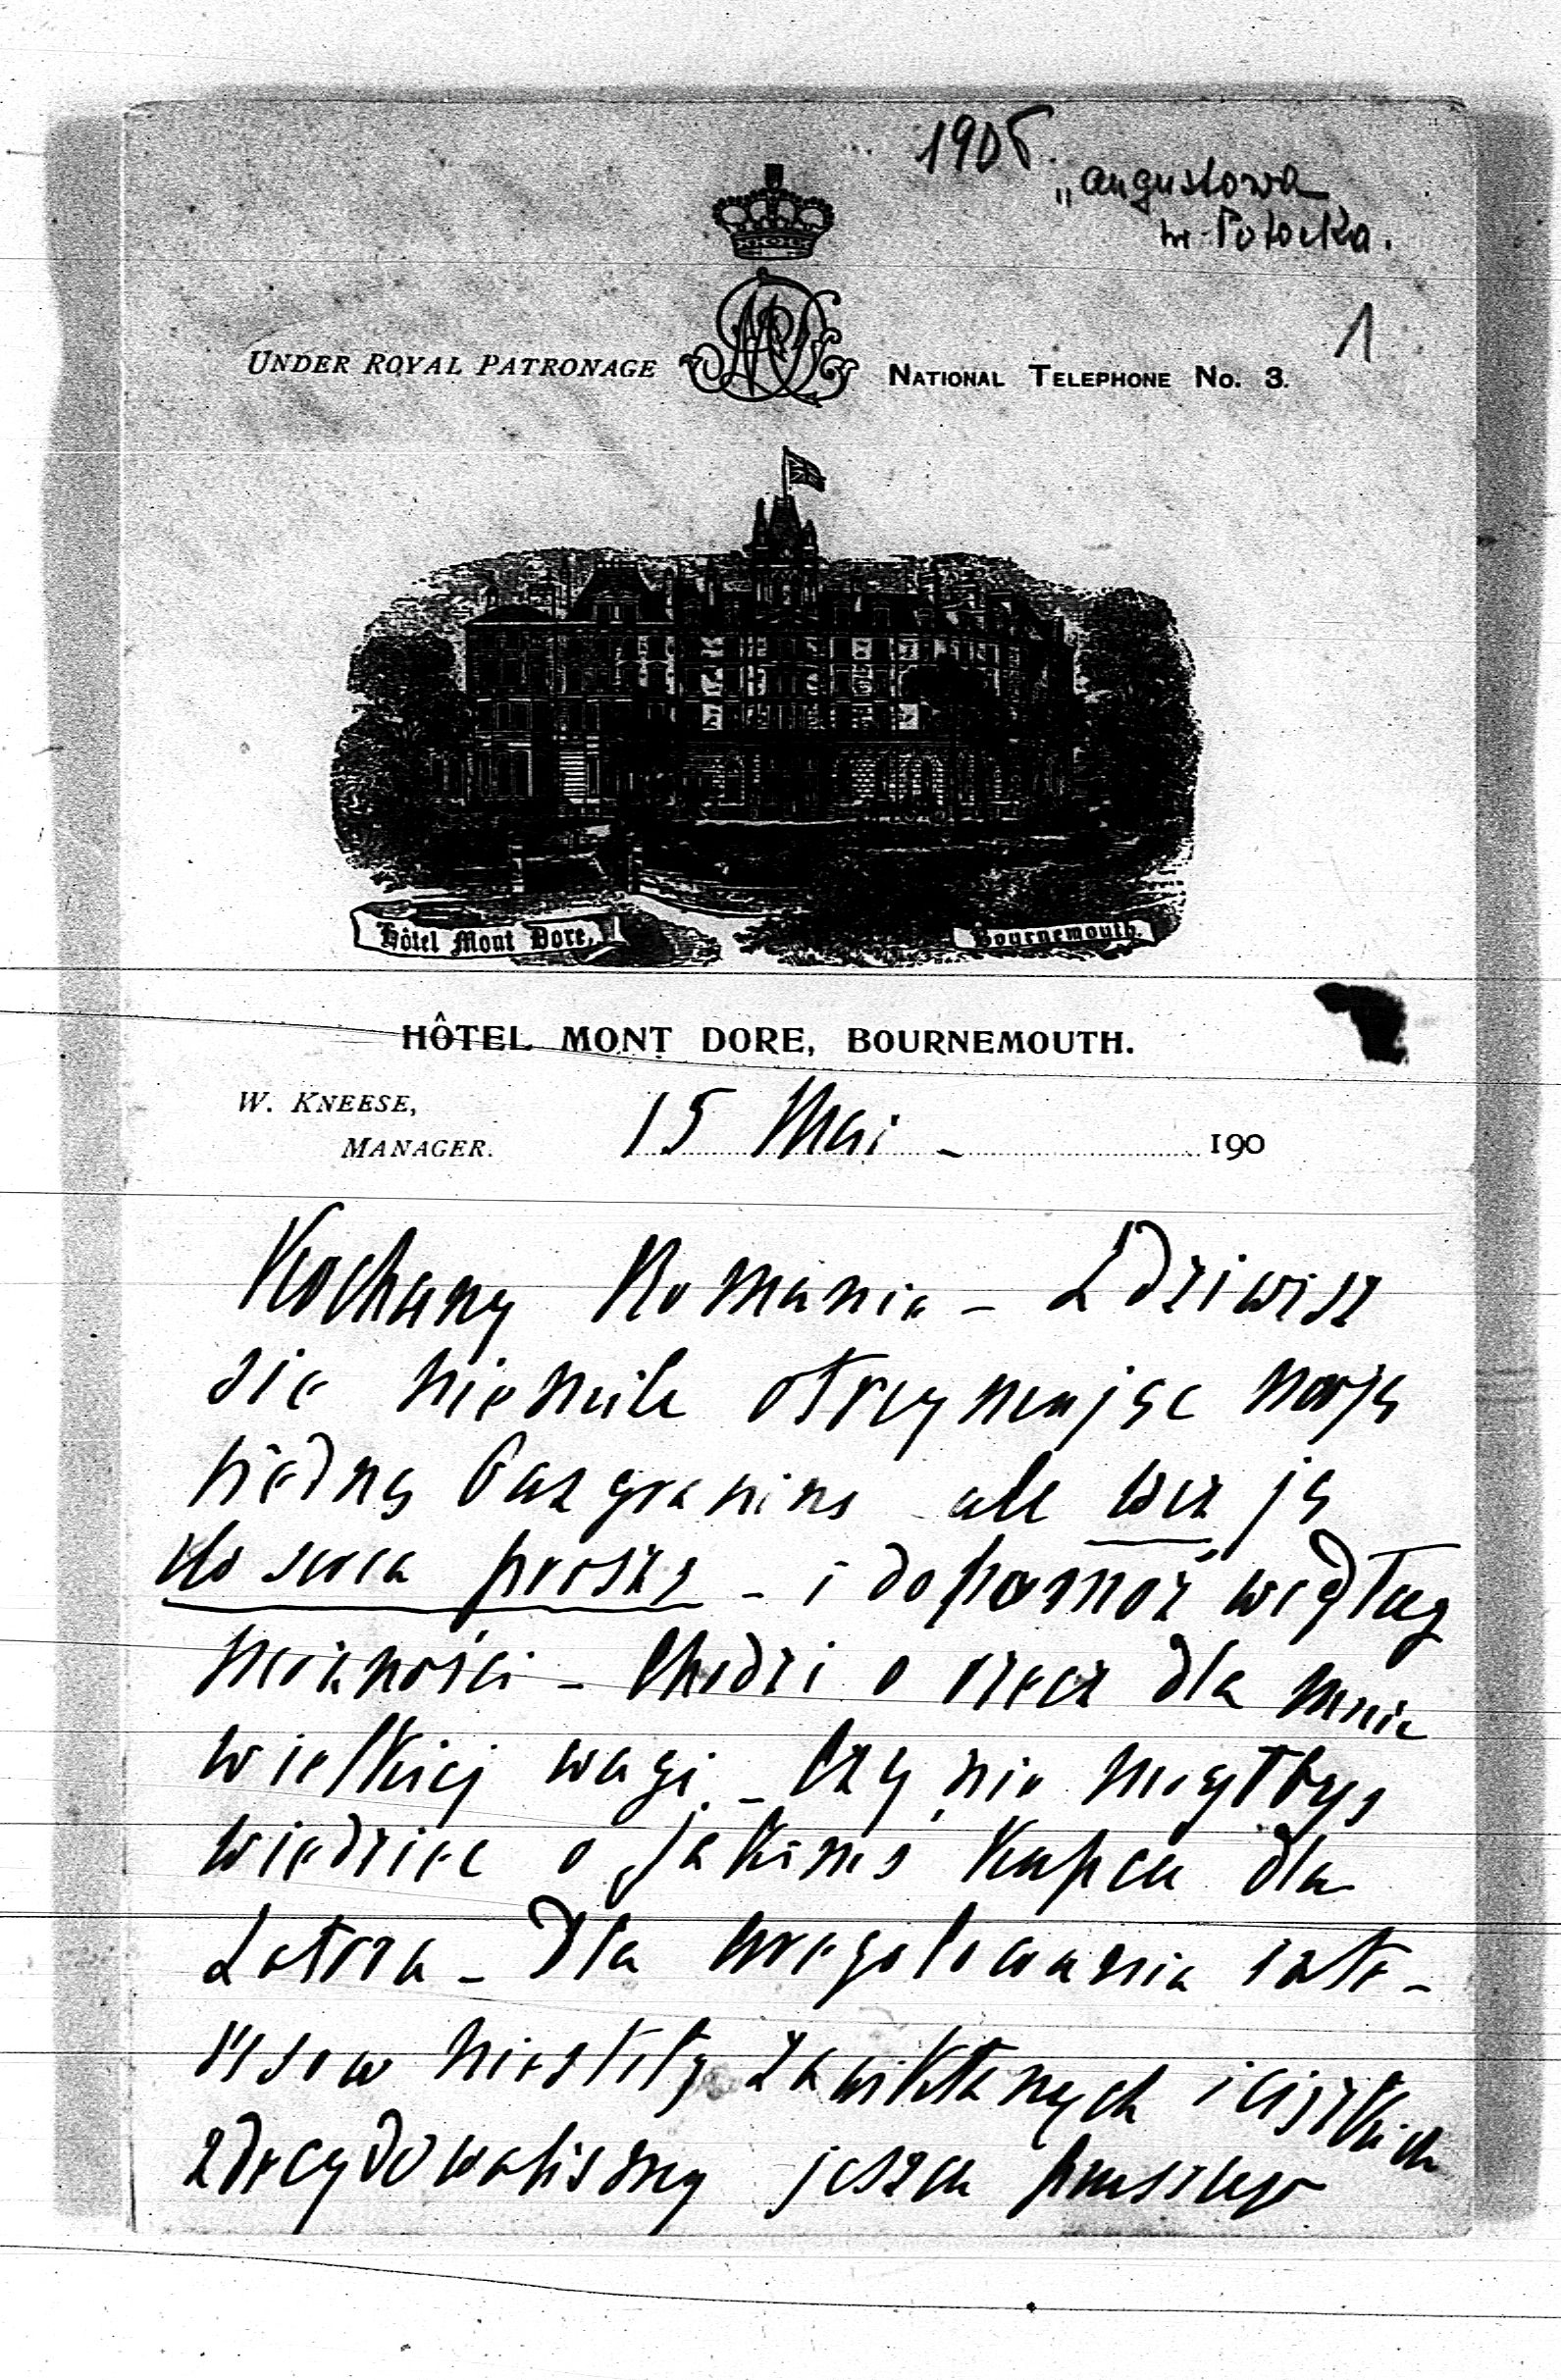 1905.
"Augustowa
hr. Potocka.
1
UNDER ROYAL PATRONAGE
NATIONAL TELEPHONE No. 3.
Hôtel Mont Dore,
Bournemouth.
HÔTEL MONT DORE, BOURNEMOUTH.
W. KNEESE,
MANAGER.
15 Mai - 190
Kochany Romanie - Zdziwisz
sie niemile otrzymując moją
biedną bazgraninę ale weź ją
do serca proszę - i dopomóż według
możności - Chodzi o rzecz dla mnie
wielkiej wagi - Czy nie mógłbyś
wiedziec o jakimś kupcu dla
Zatora - Dla uregulowania inte-
resow niestety zawikłanych i ciężkich
zdecydowalismy jeszcze przeszłego